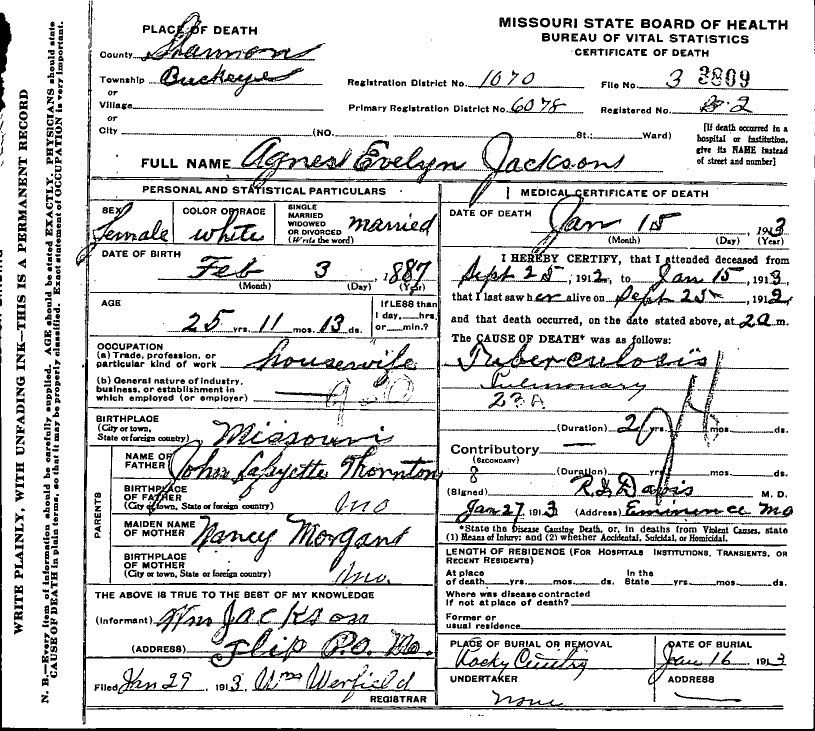 MISSOURI STATE BOARD OF HEALTH
BUREAU OF VITAL STATISTICS
CERTIFICATE OF DEATH
PLACE OF DEATH
County Shannon
Township Buckeye
or
Village
or
City (NO. St.: Ward)
Registration District No. 1070 File No. 3 3809
Primary Registration District No. 6078 Registered No. 2
[If death occurred in a
hospital or institution,
give its NAME instead
of street and number]
FULL NAME Agnes Evelyn Jackson
PERSONAL AND STATISTICAL PARTICULARS
SEX female
COLOR OR RACE white
SINGLE
MARRIED
WIDOWED
OR DIVORCED
(Write the word) married
DATE OF BIRTH
Feb 3, 1887
(Month) (Day) (Year)
AGE
25 yrs. 11 mos. 13 ds.
If LESS than
1 day, hrs.
or min.?
OCCUPATION
(a) Trade, profession, or
particular kind of work housewife
(b) General nature of industry,
business, or establishment in
which employed (or employer)
BIRTHPLACE
(City or town,
State or foreign country) Missouri
PARENTS
NAME OF
FATHER John Lafayette Thornton
BIRTHPLACE
OF FATHER
(City or town, State or foreign country) Mo
MAIDEN NAME
OF MOTHER Nancy Morgan
BIRTHPLACE
OF MOTHER
(City or town, State or foreign country) Mo.
THE ABOVE IS TRUE TO THE BEST OF MY KNOWLEDGE
(Informant) Wm Jackson
(ADDRESS) Flip P.O. Mo.
Filed Jan 29, 1913 Wm Werfield
REGISTRAR
MEDICAL CERTIFICATE OF DEATH
DATE OF DEATH Jan 15, 1913
(Month) (Day) (Year)
I HEREBY CERTIFY, that I attended deceased from
Sept 25, 1912, to Jan 15, 1913
that I last saw her alive on Sept 25, 1912,
and that death occurred, on the date stated above, at 2a m.
The CAUSE OF DEATH* was as follows:
Tuberculosis
Pulmonary
23A
(Duration) 2 yrs. mos. ds.
Contributory —
(SECONDARY)
8 (Duration) yrs. mos. ds.
(Signed) R.S. Davis M. D.
Jan 27, 1913 (Address) Eminence Mo
*State the Disease Causing Death, or, in deaths from Violent Causes, state
(1) Means of Injury; and (2) whether Accidental, Suicidal, or Homicidal.
LENGTH OF RESIDENCE (FOR HOSPITALS INSTITUTIONS, TRANSIENTS, OR
RECENT RESIDENTS)
At place
of death yrs. mos. ds.
In the
State yrs. mos. ds.
Where was disease contracted
If not at place of death?
Former or
usual residence
PLACE OF BURIAL OR REMOVAL
DATE OF BURIAL
Jan 16 1913
UNDERTAKER
none
ADDRESS
WRITE PLAINLY, WITH UNFADING INK—THIS IS A PERMANENT RECORD
N. B.—Every item of information should be carefully supplied. AGE should be stated EXACTLY. PHYSICIANS should state
CAUSE OF DEATH in plain terms, so that it may be properly classified. Exact statement of OCCUPATION is very important.